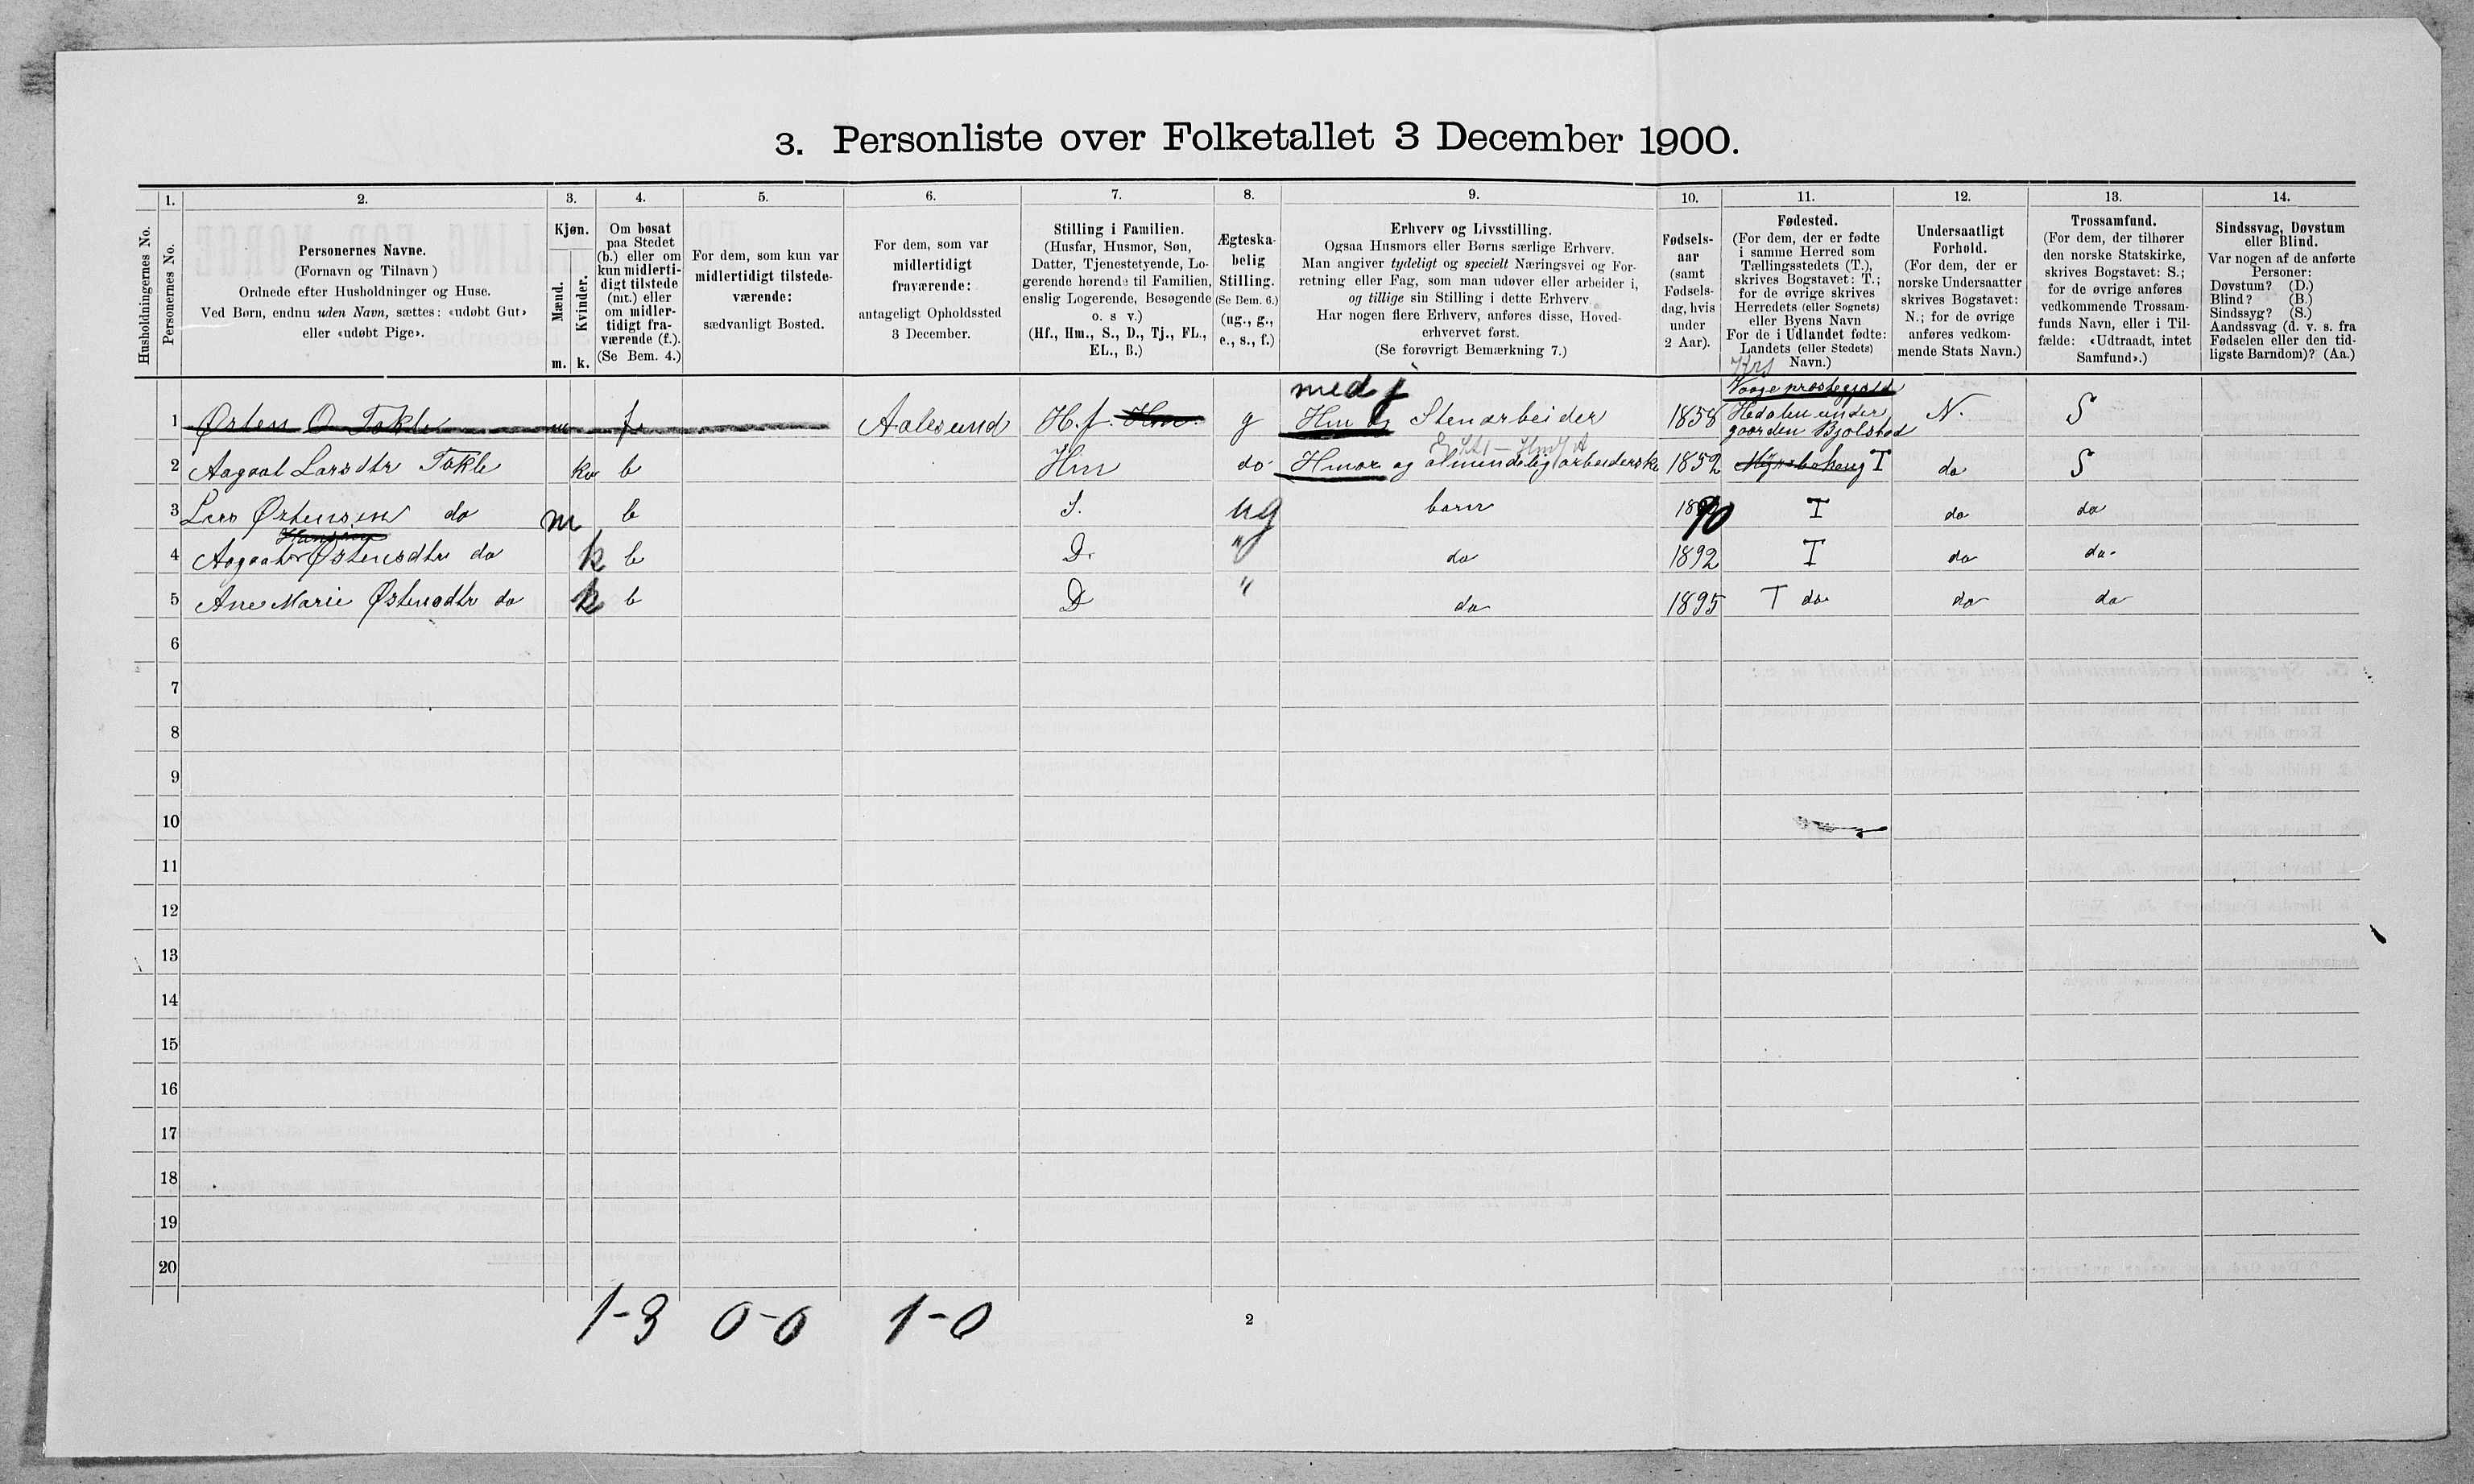 3. Personliste over Folketallet 3 December 1900.
1. 2. 3. 4. 5. 6. 7. 8. 9. 10. 11. 12. 13. 14.
Husholdningernes No.
Personernes No.
Personernes Navne.
(Fornavn og Tilnavn )
Ordnede efter Husholdninger og Huse.
Ved Børn, endnu uden Navn, sættes: «udøbt Gut»
eller «udøbt Pige».
Kjøn.
Mænd.
Kvinder.
m. k.
Om bosat
paa Stedet
(b.) eller om
kun midlerti-
digt tilstede
(mt.) eller
om midler-
tidigt fra-
værende (f.).
(Se Bem. 4.)
For dem, som kun var
midlertidigt tilstede-
værende:
sædvanligt Bosted.
For dem, som var
midlertidigt
fraværende:
antageligt Opholdssted
3 December.
Stilling i Familien.
(Husfar, Husmor, Søn,
Datter, Tjenestetyende, Lo-
gerende hørende til Familien,
enslig Logerende, Besøgende
o. s v.)
(Hf., Hm., S., D., Tj., FL.,
EL., B.)
Ægteska-
belig
Stilling.
(Se Bem. 6.)
(ug., g.,
e., s., f.)
Erhverv og Livsstilling.
Ogsaa Husmors eller Børns særlige Erhverv.
Man angiver tydeligt og specielt Næringsvei og For-
retning eller Fag, som man udøver eller arbeider i,
og tillige sin Stilling i dette Erhverv.
Har nogen flere Erhverv, anføres disse, Hoved-
erhvervet først.
(Se forøvrigt Bemærkning 7.)
Fødsels-
aar
(samt
Fødsels-
dag, hvis
under
2 Aar).
Fødested.
(For dem, der er fødte
i samme Herred som
Tællingsstedets (T.),
skrives Bogstavet: T.;
for de øvrige skrives
Herredets (eller Sognets)
eller Byens Navn
For de i Udlandet fødte:
Landets (eller Stedets)
Navn.)
Undersaatligt
Forhold.
(For dem, der er
norske Undersaatter
skrives Bogstavet:
N.; for de øvrige
anføres vedkom-
mende Stats Navn.)
Trossamfund.
(For dem, der tilhører
den norske Statskirke,
skrives Bogstavet: S.;
for de øvrige anføres
vedkommende Trossam-
funds Navn, eller i Til-
fælde: «Udtraadt, intet
Samfund».)
Sindssvag, Døvstum
eller Blind.
Var nogen af de anførte
Personer:
Døvstum? (D.)
Blind? (B.)
Sindssyg? (S.)
Aandssvag (d. v. s. fra
Fødselen eller den tid-
ligste Barndom)? (Aa.)
med
Vaage prestegjæld
1 Østen O Tokle m f. Aalesund H.f. Hm. g Hm Stenarbeider 1858 Hedalen under N. S
gaarden Bjølstad
2 Aagaat Larsdtr Tokle kv b Hm do Hmor og almindelig arbeiderske 1852 T do S
3 Lars Østensen do m b S. ug barn 1890 T do do
Hansen
4 Aagaat Østensdtr do k b D. " do 1892 T do do.
5 Ane Marie Østensdtr do k b D " do 1895 T do. do do
6
7
8
9
10
11
12
13
14
15
16
17
18
19
20
1-3 0-0 1-0
2